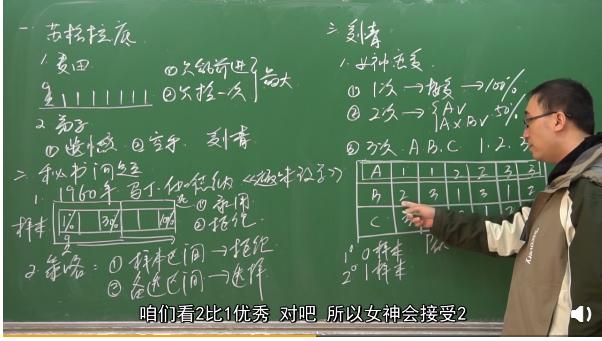 一 苏格拉底
1. 麦田
① 只能前进
② 只捡一次
最大
2. 弟子
② 空手
刘青
二 秘书问题
1. 1960年 马丁·加德纳《趣味数学》
① 录用
② 拒绝
样本
1%
2. 策略：① 样本区间 → 拒绝
② 备选区间 → 选择
三 刘青
1. 女神恋爱
① 1次 → 接受 → 100%
② 2次 → A√
A×B√ 50%
③ 3次 A.B.C 1.2.3
A 1 1 2 2 3 3
B 2 3 1 3 1
C
1° 0样本
2° 1样本
咱们看2比1优秀 对吧 所以女神会接受2